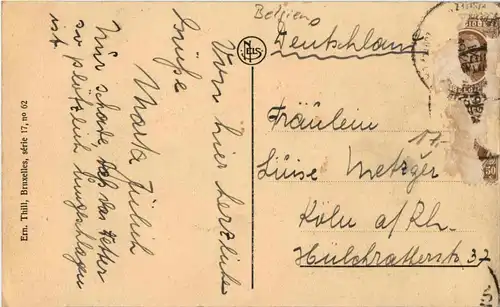 Ern. Thill, Bruxelles, série 17, no 62
Von hier herzliche
Grüße
Marta Jülich
Nur schade, daß das Wetter
so plötzlich umgeschlagen
ist.
Belgien
Deutschland
Fräulein
Luise Metzger
Köln a/Rh.
Hülchratherstr. 37
17.-